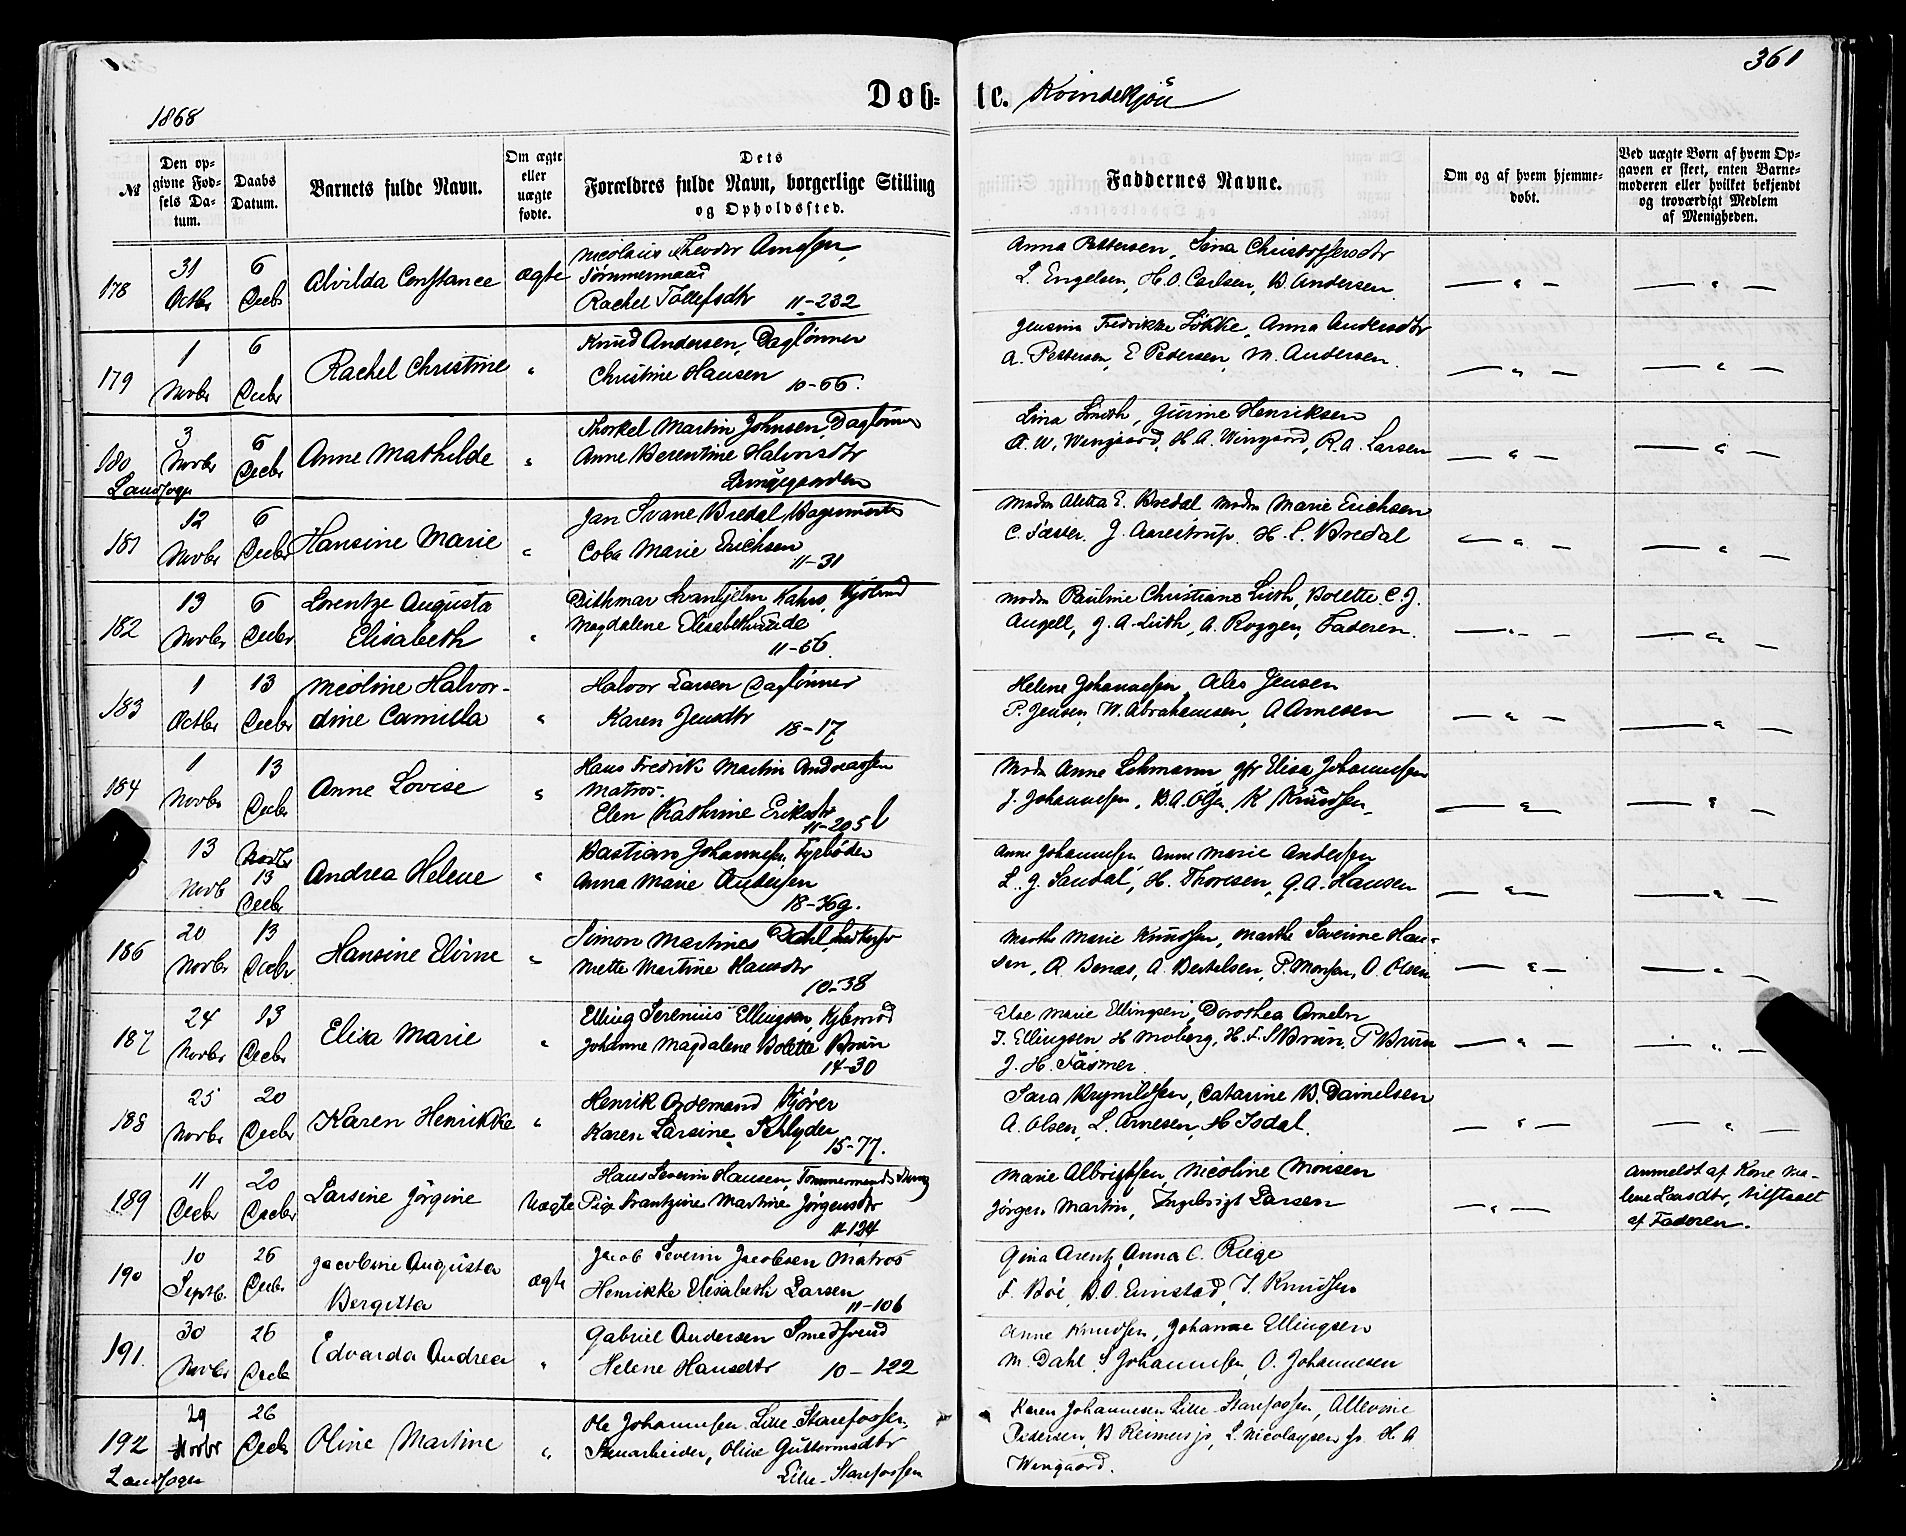 361
Døb- te. Kvindekjøn
1868
№
Den op-
givne Fød-
sels Da-
tum.
Daabs
Datum.
Barnets fulde Navn.
Om ægte
eller
uægte
fødte.
Dets
Forældres fulde Navn, borgerlige Stilling
og Opholdssted.
Faddernes Navne.
Om og af hvem hjemme-
døbt.
Ved uægte Børn af hvem Op-
gaven er skeet, enten Barne-
moderen eller hvilket bekjendt
og troværdigt Medlem
af Menigheden.
178 31 Octbr 6 Decbr Alvilda Constance ægte
Nicolaus Theodor Arnesen,
Tømmermand
Rachel Tollefsdtr 11-232
Anna Pettersen, Sina Christoffersdtr
L. Engelsen, H.O. Carlsen, B. Andersen
179 1 Novbr 6 Decbr Rachel Christine "
Knud Andersen, Daglønner
Christine Hansen 10-66.
Jensine Fredrikke Løkke, Anna Andersdtr
A. Pettersen, E Pedersen, M. Andersen
180 3 Novbr 6 Decbr Anne Mathilde "
Landsogn
Thorkel Martin Johnsen, Daglønner
Anne Berentine Halvorsdtr
Lungegaarden
Lina Smith, Gurine Henriksen
A. W. Wingaard, H.A. Wingaard, R.A. Larsen
181 12 Novbr 6 Decbr Hansine Marie "
Jan Svane Bredal
Marie Erichsen
11-31
Madm Aletta E. Bredal Madm Marie Erichsen
C. Fæster. J. Aarestrup. H. C. Bredal
182 13 Novbr 6 Decbr Lorentze Augusta
Elisabeth "
Dithmar Kahrs,
Magdalene Elisabeth
11-66.
Madm Pauline Christiane Luth, Bolette C.J.
Angell, J. A. Luth, A. Roggen, Faderen.
183 1 Octbr 13 Decbr Nicoline Halvor-
dine Camilla "
Halvor Larsen Daglønner
Karen Jensdtr 18-17
Helene Johannesen, Jensen
P. Jensen, W. Abrahamsen, A Arnesen
184 1 Novbr 13 Decbr Anne Lovise "
Hans Fredrik Martin Andreassen
Matros.
Elen Kathrine Eriksdtr
11-205 b
Madm Anne Lehmann, Elisa Johannessen
J. Johannessen, B.A. Olsen, K Knudsen
13 Novb 13 Decbr Andrea Helene "
Bastian Johannessen, Fyrbøder
Anna Marie Andersen
18-36g.
Anne Johannessen, Anne Marie Andersen
L. J. Sandal, H. Thoresen, G.A. Hansen
186 20 Novbr 13 Decbr Hansine Elvine "
Simon Martines Dahl,
Mette Martine Hansdtr
10-38
Marthe Marie Knudsen, Marthe Severine Han-
sen, A. Bertelsen, P. Monsen, O. Olsen
187 24 Novbr 13 Decbr Elisa Marie "
Elling Serenius Ellingsen,
Johanne Magdalene Bolette Bruun
14-30
Else Marie Ellingsen, Dorothea
J. Ellingsen H Moberg, H. F. S Bruun, P Bruun
J. H. Fasmer.
188 25 Novbr 20 Decbr Karen Henrikke "
Henrik Kjører
Karen Larsine Schlyder
15-77.
Sara Brynildsen, Catarine B. Danielsen
A. Olsen, L. Arnesen, H Isdal.
189 11 Decbr 20 Decbr Larsine Jørgine Uægte
Hans Severin Hansen, Tømmermands
Pige Frantzine Martine Jørgensdtr
11-124
Marie Albrigtsen, Nicoline Monsen
Jørgen Martin, Ingebrigt Larsen
Anmeldt af Kone Ma-
lene Larsdtr, tilstaaet
af Faderen.
190 10 Septb. 26 Decbr Jacobine Augusta
Bergitta ægte
Jacob Severin Jacobsen Matros
Henrikke Elisabeth Larsen
11-106
Gina Arentz, Anna C. Riege
F. Bøe, B.O. Eimstad, J. Knudsen
191. 30 Novbr 26 Decb Edvarda Andrea "
Gabriel Andersen Smedsvend
Helene Hansdtr 10-122
Anne Knudsen, Johanne Ellingsen
M. Dahl, S Johannessen, O. Johannesen
192 29 Novbr 26 Decb Oline Martine "
Landsogn
Ole Johannessen Lille Starefossen.
Stenarbeider, Oline Guttormsdtr
Lille-Starefossen
Karen Johannesen Lille-Starefossen,
Pedersen, B Reimers jr, L. Nicolaysen jr. H. A
Wingaard.